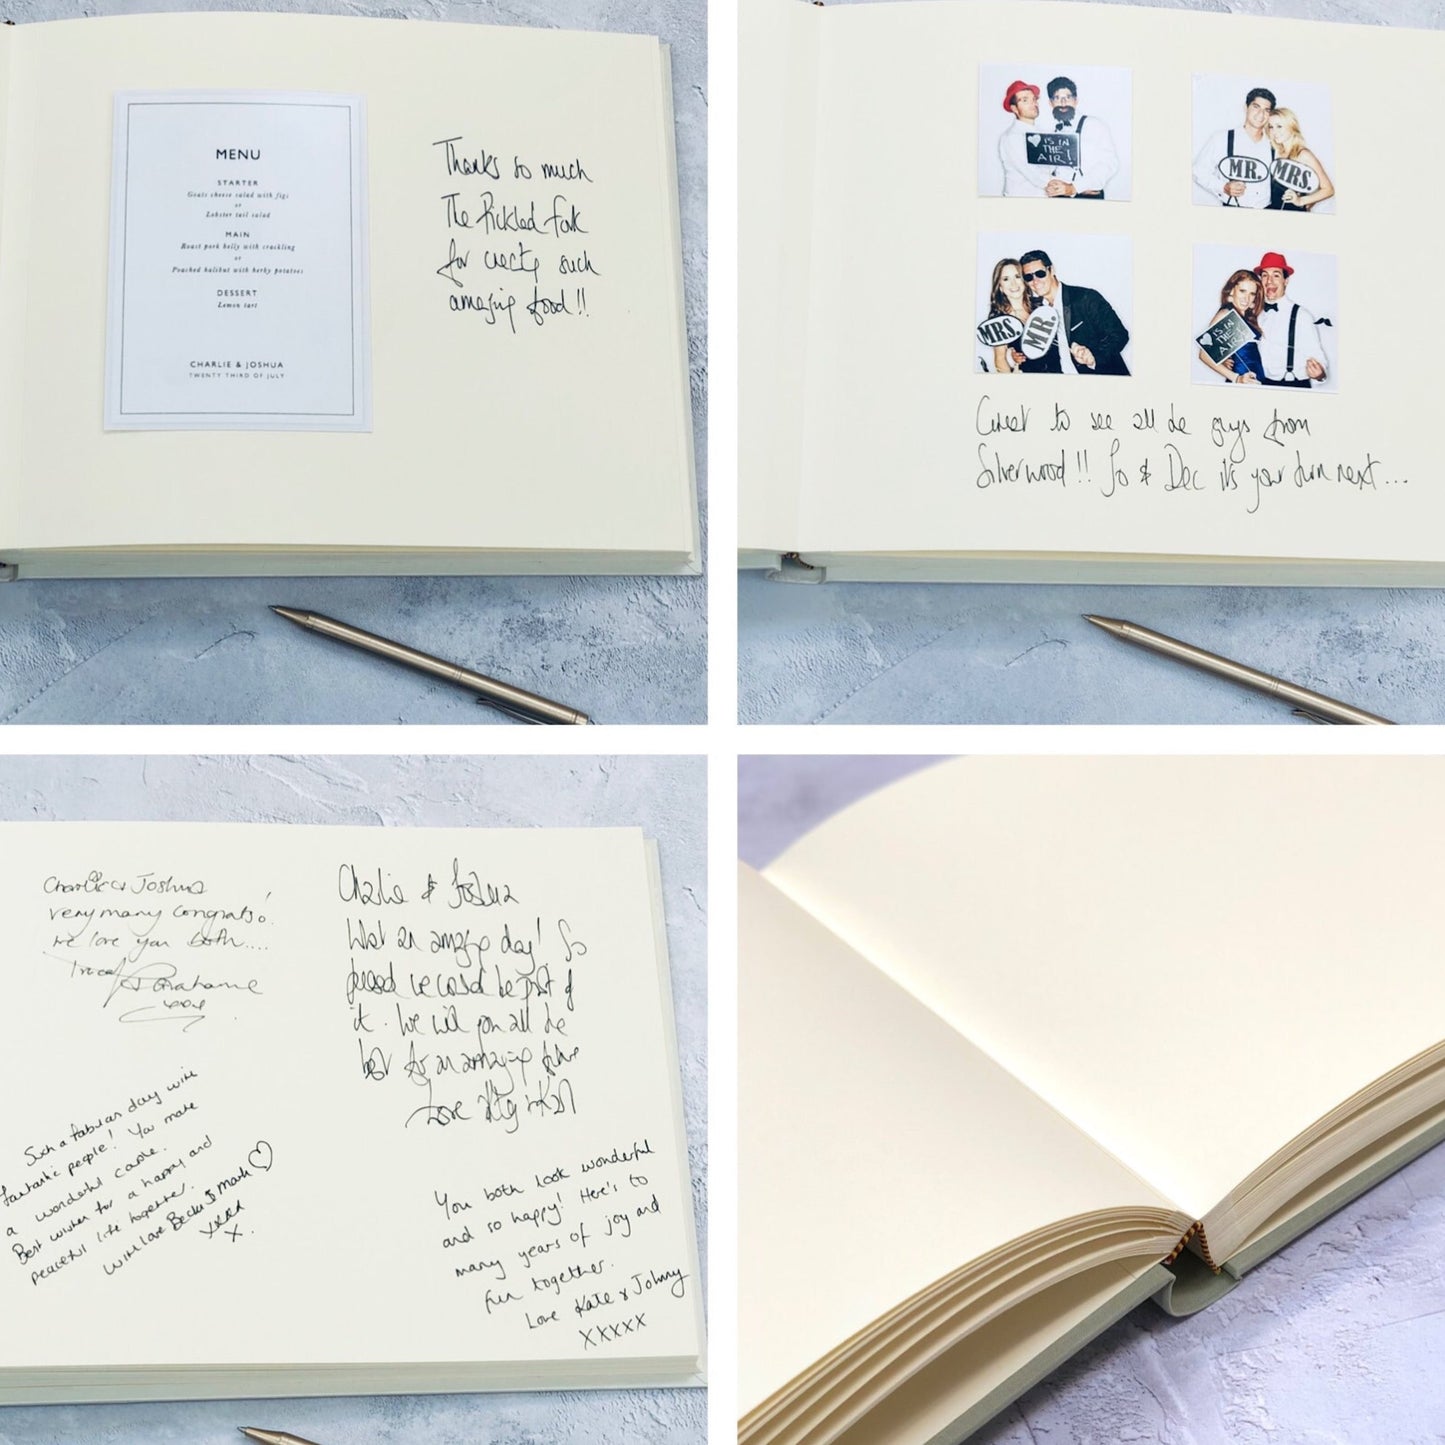 MENU
STARTER
Goats cheese salad with figs
or
Lobster tail salad
MAIN
Roast pork belly with crackling
or
Poached halibut with herby potatoes
DESSERT
Lemon tart
CHARLIE & JOSHUA
TWENTY THIRD OF JULY
Thanks so much
The Pickled Fork
for such
amazing food!!
IS IN
THE
AIR!
MR.
MRS.
MRS.
MR.
IS IN
THE
AIR!
Great to see all the guys from
Silverwood!! Jo & Dec it's your turn next...
Charlie & Joshua
very many congrats!
we love you both....
Grahame
xxx
Such a fabulous day with
fantastic people! You make
a wonderful couple.
Best wishes for a happy and
peaceful life together.
With love Becki & Mark
xxxx
x.
Charlie & Joshua
What an amazing day! So
pleased we could be part of
it. We wish you all the
best for an amazing future
Love
You both look wonderful
and so happy! Here's to
many years of joy and
fun together.
Love Kate & Johnny
xxxxx